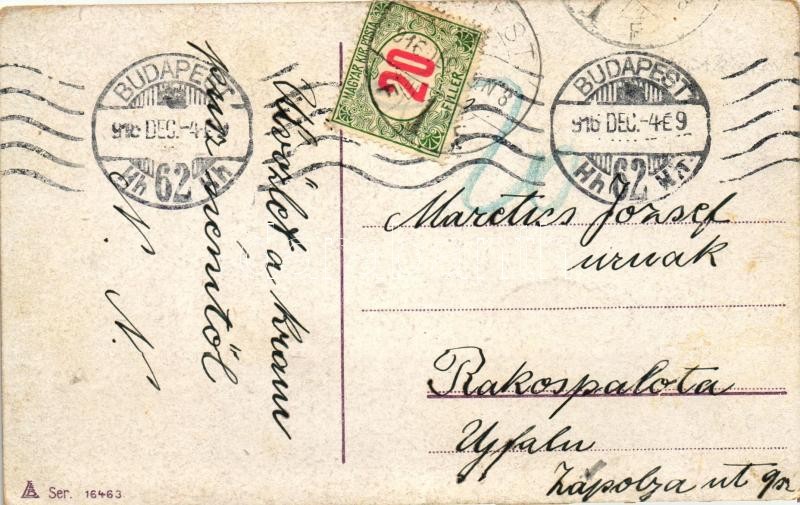 BUDAPEST
916 DEC.-4 E 9
Hh 62 Hh
MAGYAR KIR. POSTA
20
FILLÉR
BUDAPEST
916 DEC.-4 E 9
Hh 62 Hh
Üdvözlet a
N. N.
József
urnak
Rakospalota
Ujfalu
Zápolya ut 9sz
Ser. 16463